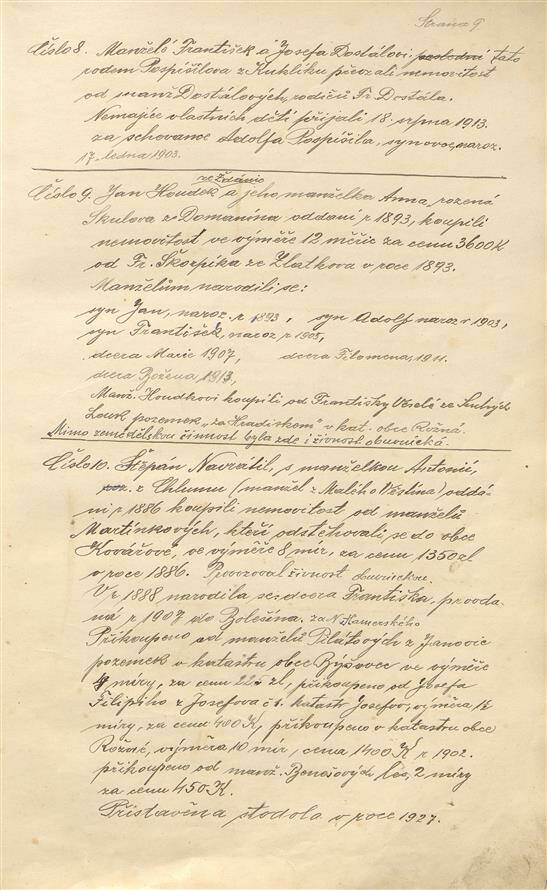 Strana 9
Číslo 8. Manželé František a Josefa Dostálovi, posledně tato
rodem Pospíšilova z Kuklíku převzali nemovitost
od manž. Dostálových, rodičů Fr. Dostála.
Nemajíce vlastních dětí přijali 18. srpna 1913.
za schovance Adolfa Pospíšila, synovce, naroz.
17. ledna 1903.
ze Ždánic
Číslo 9. Jan Houdek a jeho manželka Anna, rozená
Skulova z Domanína oddaní r 1893, koupili
nemovitost ve výměře 12 měřic za cenu 3600 K
od Fr. Škorpíka ze Zlatkova v roce 1893.
Manželům narodili se:
syn Jan, naroz. r 1893, syn Adolf naroz r 1903,
syn František, naroz r 1905,
dcera Marie 1907, dcera Filomena, 1911.
dcera Božena 1913,
Manž. Houdkovi koupili od Františky Veselé ze
Louk pozemek „za Hradiskem" v kat. obce Rožná.
Mimo zemědělskou činnost byla zde i živnost obuvnická.
Číslo 10. Štěpán Navrátil, s manželkou Antonií,
roz. z Chlumu (manžel z Malého) oddá-
ni r 1886 koupili nemovitost od manželů
Martínkových, kteří odstěhovali se do obce
Kovářové, ve výměře 8 mír, za cenu 1350 zl
v roce 1886. Provozoval živnost obuvnickou.
V r 1888 narodila se: dcera Františka, provda-
ná r 1907 do Bolešína. za N. Hamerského
Přikoupeno od manželů Pilátových z Janovic
pozemek v katastru obce Býšovec ve výměře
4 míry, za cenu 225 zl, přikoupeno od Josefa
Filipiho z Josefova č 1. katastr Josefov, výměra 1½
míry, za cenu 400 K, přikoupeno v katastru obce
Rožné, výměra 10 mír, cena 1400 K r 1902.
přikoupeno od manž. Benešových les, 2 míry
za cenu 450 K.
Přistavěna stodola v roce 1927.